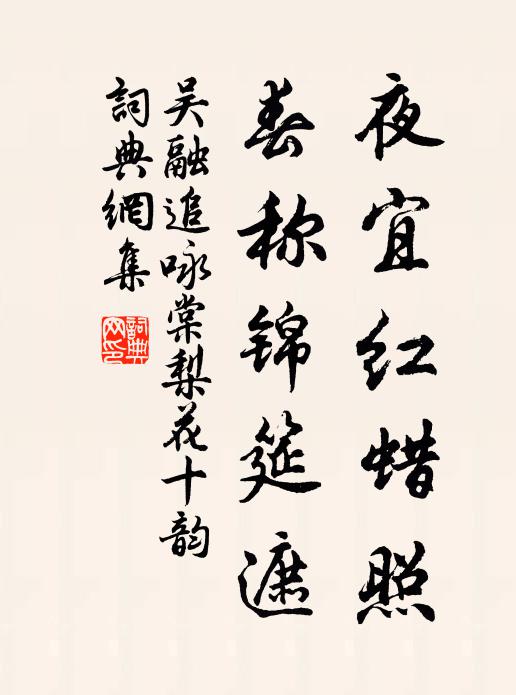 夜宜红蜡照
春称锦筵遮
吴融追咏棠梨花十韵
詞典網集
詞典网印